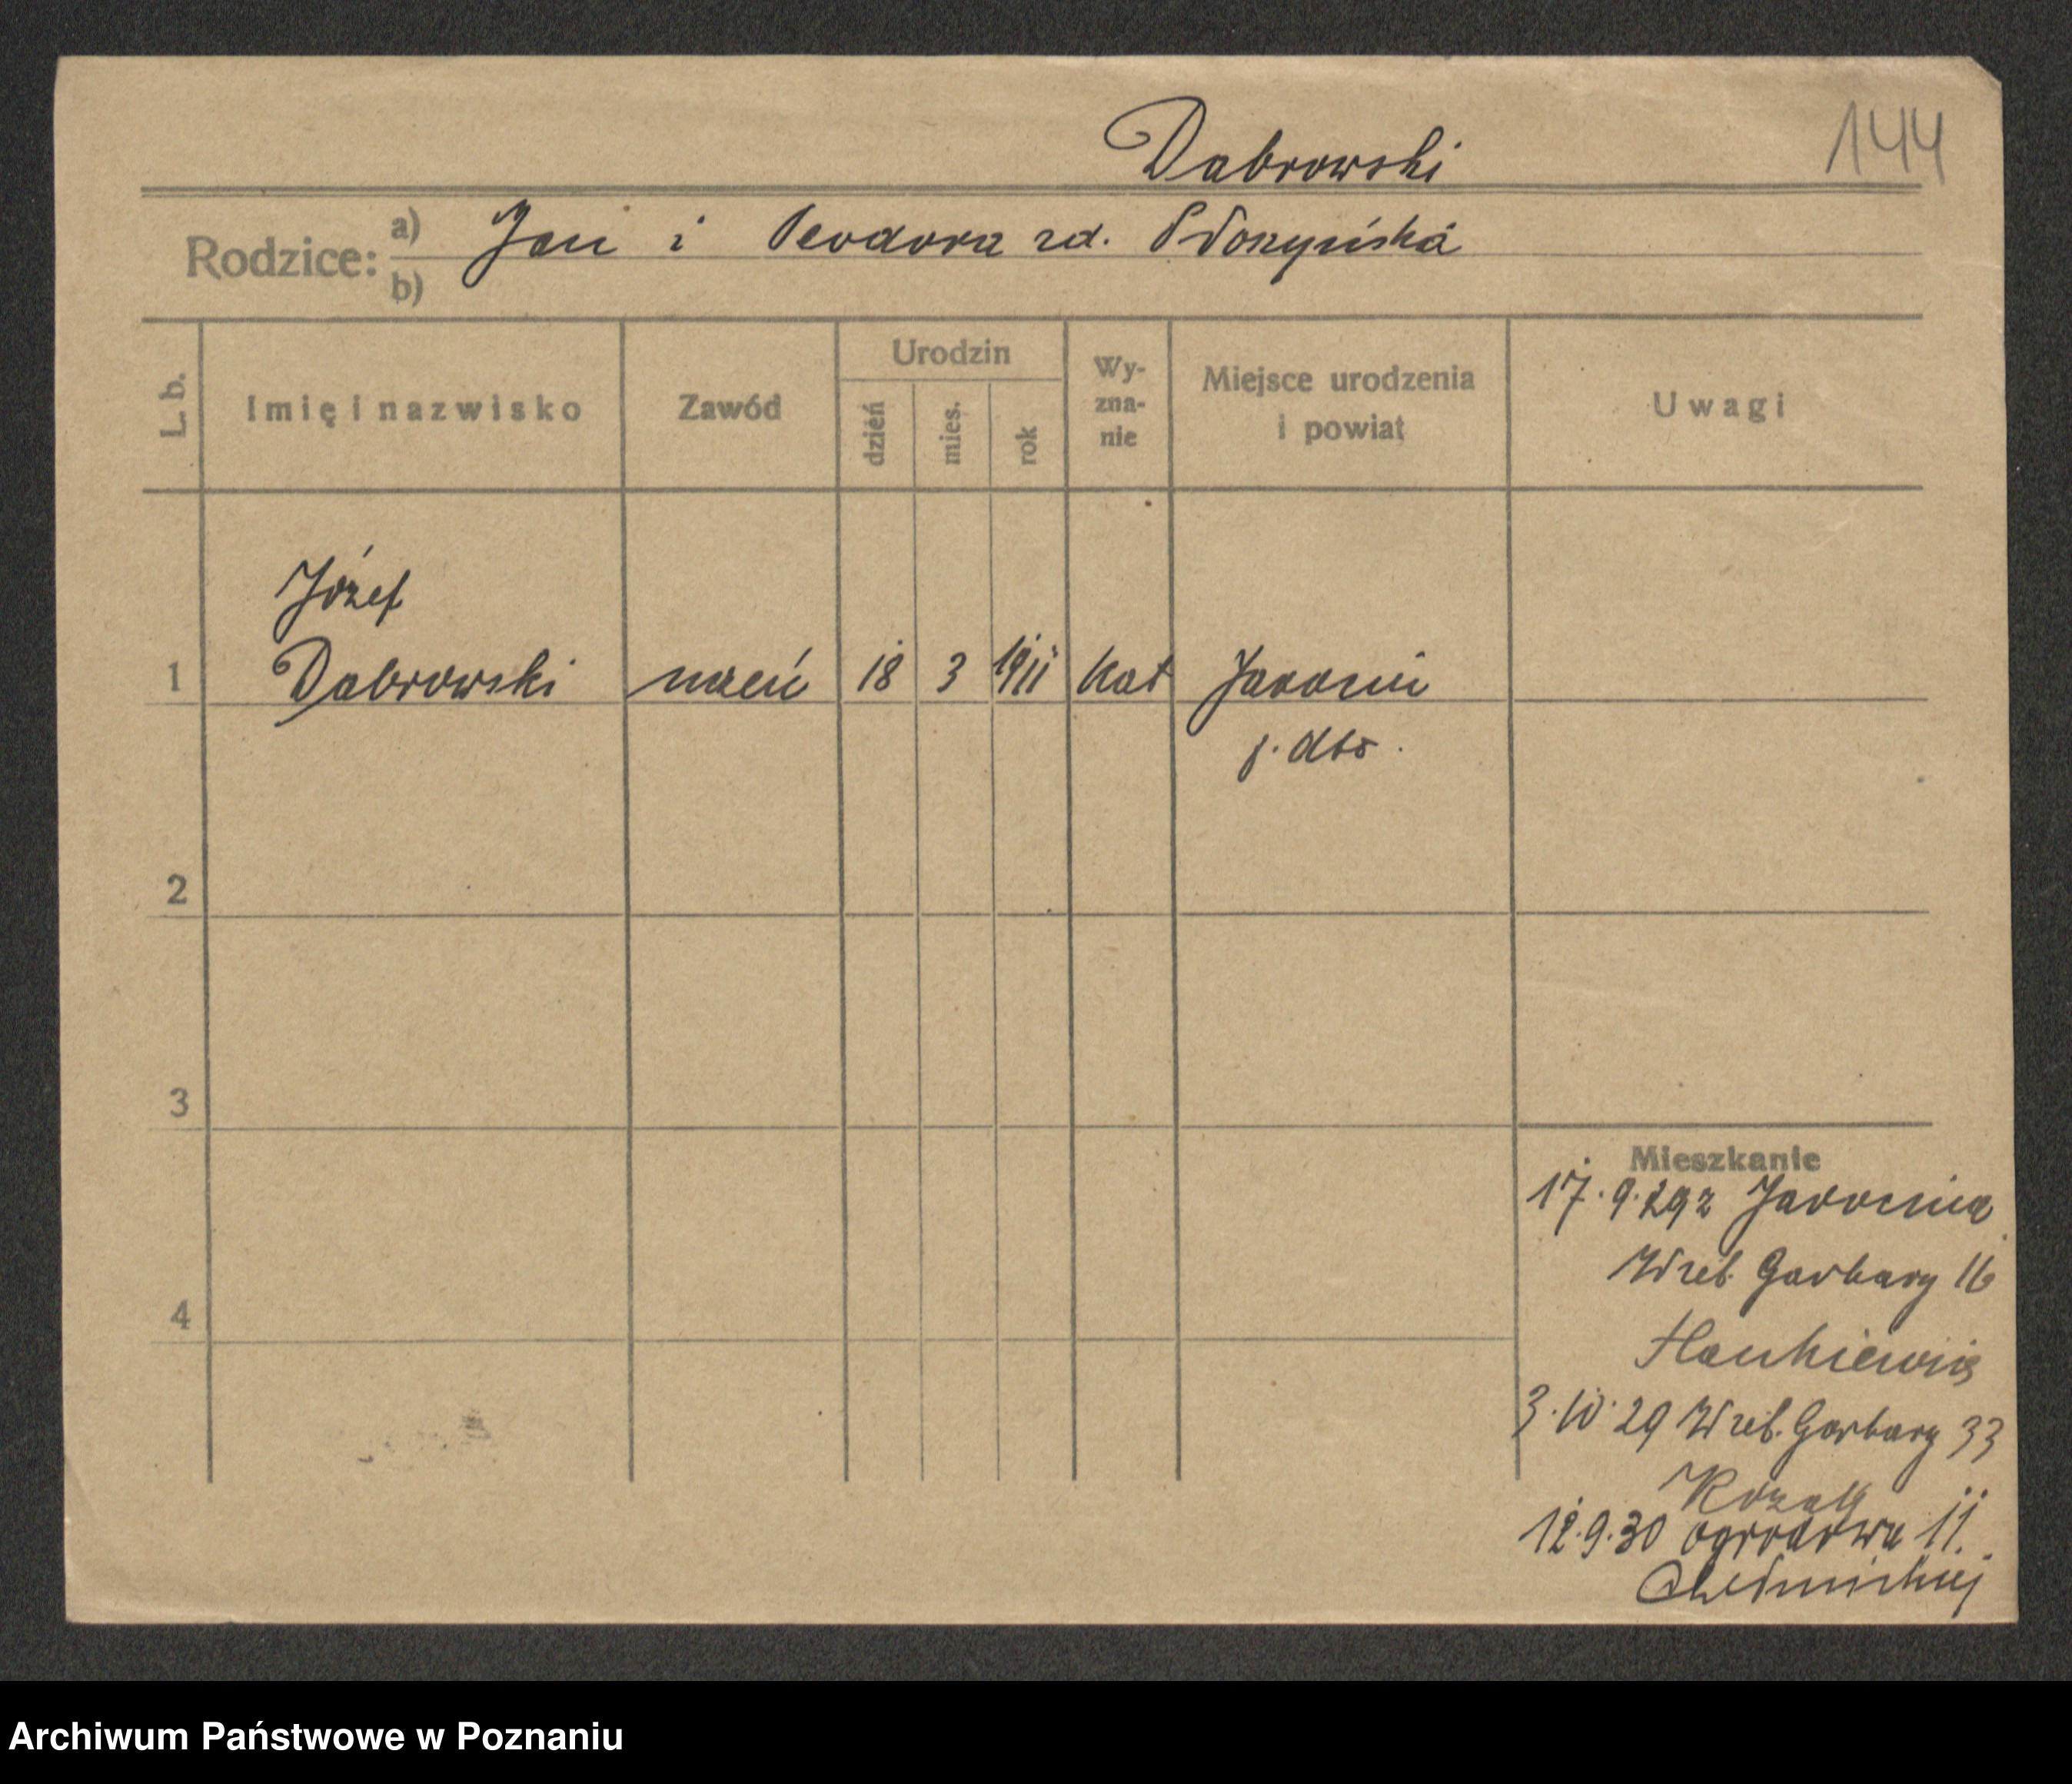 144
Dabrowski
Rodzice: a) Jan i Teodora zd.
b)
L. b. Imię i nazwisko Zawód Urodzin dzień mies. rok Wy-zna-nie Miejsce urodzenia i powiat Uwagi
Józef
1 Dabrowski uczeń 18 3 1911 kat Jarocin
p. dto.
2
3
Mieszkanie
17.9.29 z Jarocina
Wrzb. Garbary 16
4
Hankiewicz
3.10.29 Wrzb. Garbary 33
Kozak
12.9.30 ogrodowa 11.
Archiwum Państwowe w Poznaniu